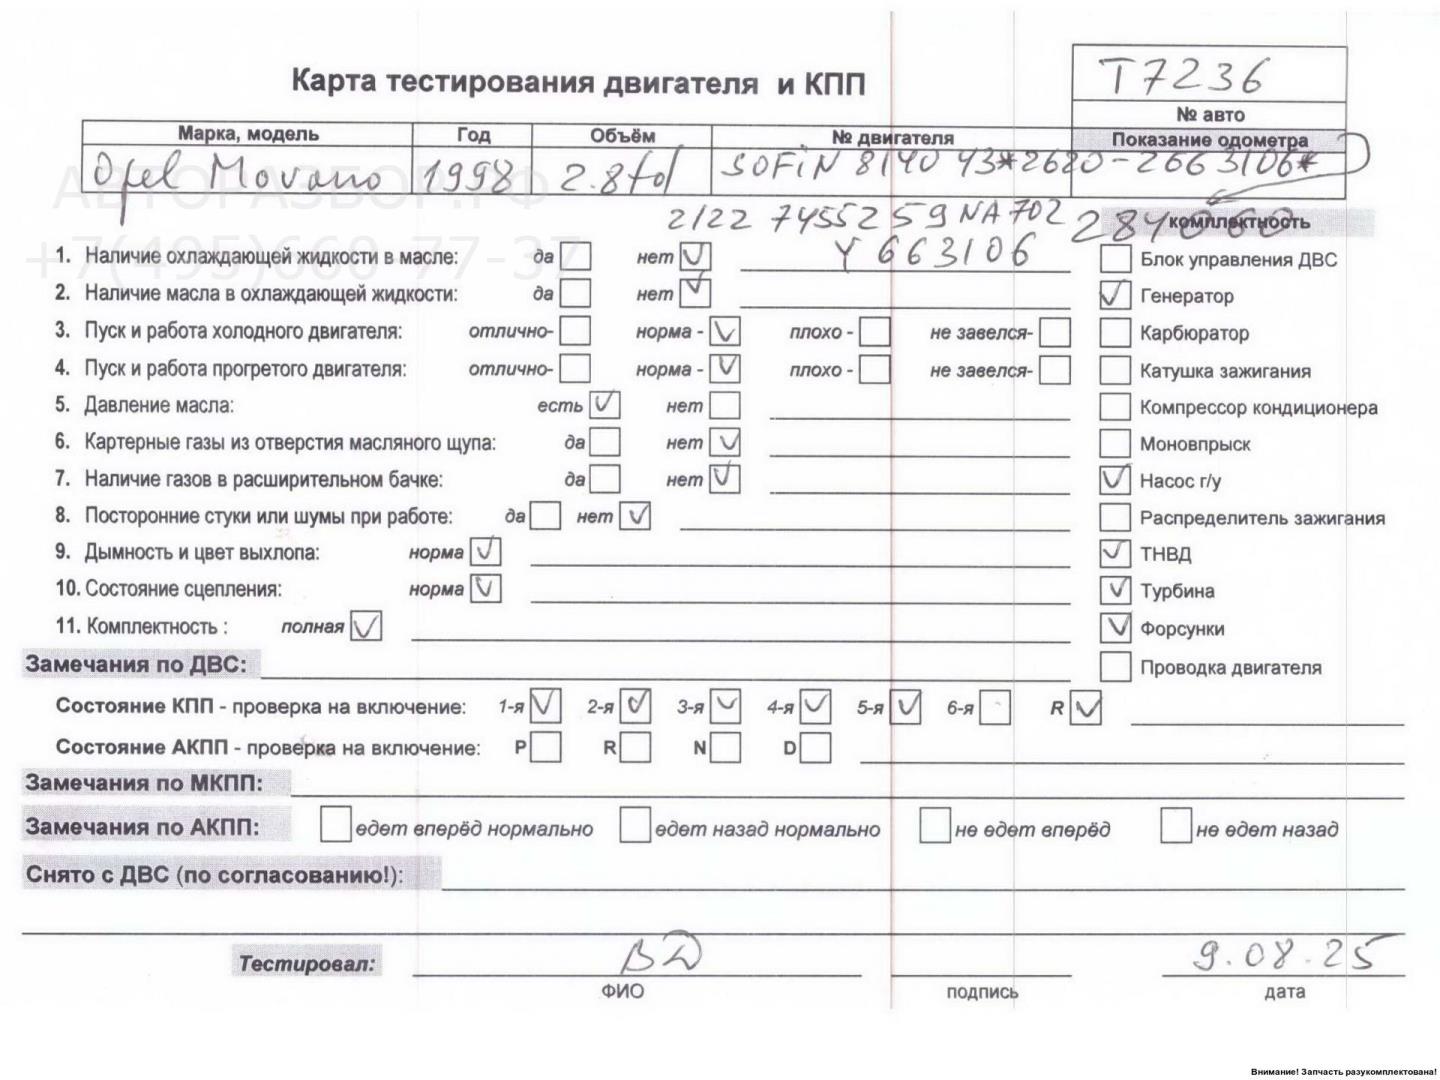 Т7236
Карта тестирования двигателя и КПП
№ авто
Марка, модель Год Объём № двигателя Показание одометра
Opel Movano 1998 2.8td SOFIN 8140 43*2620-2663106*
АВТОРАЗБОР.РФ
2122 7455259 NA702 284000
Y 663106
комплектность
+7(495)660-77-37
1. Наличие охлаждающей жидкости в масле: да нет Блок управления ДВС
2. Наличие масла в охлаждающей жидкости: да нет Генератор
3. Пуск и работа холодного двигателя: отлично- норма - плохо - не завелся- Карбюратор
4. Пуск и работа прогретого двигателя: отлично- норма - плохо - не завелся- Катушка зажигания
5. Давление масла: есть нет Компрессор кондиционера
6. Картерные газы из отверстия масляного щупа: да нет Моновпрыск
7. Наличие газов в расширительном бачке: да нет Насос г/у
8. Посторонние стуки или шумы при работе: да нет Распределитель зажигания
9. Дымность и цвет выхлопа: норма ТНВД
10. Состояние сцепления: норма Турбина
11. Комплектность : полная Форсунки
Замечания по ДВС: Проводка двигателя
Состояние КПП - проверка на включение: 1-я 2-я 3-я 4-я 5-я 6-я R
Состояние АКПП - проверка на включение: P R N D
Замечания по МКПП:
Замечания по АКПП: едет вперёд нормально едет назад нормально не едет вперёд не едет назад
Снято с ДВС (по согласованию!):
Тестировал: ВД 9.08.25
ФИО подпись дата
Внимание! Запчасть разукомплектована!